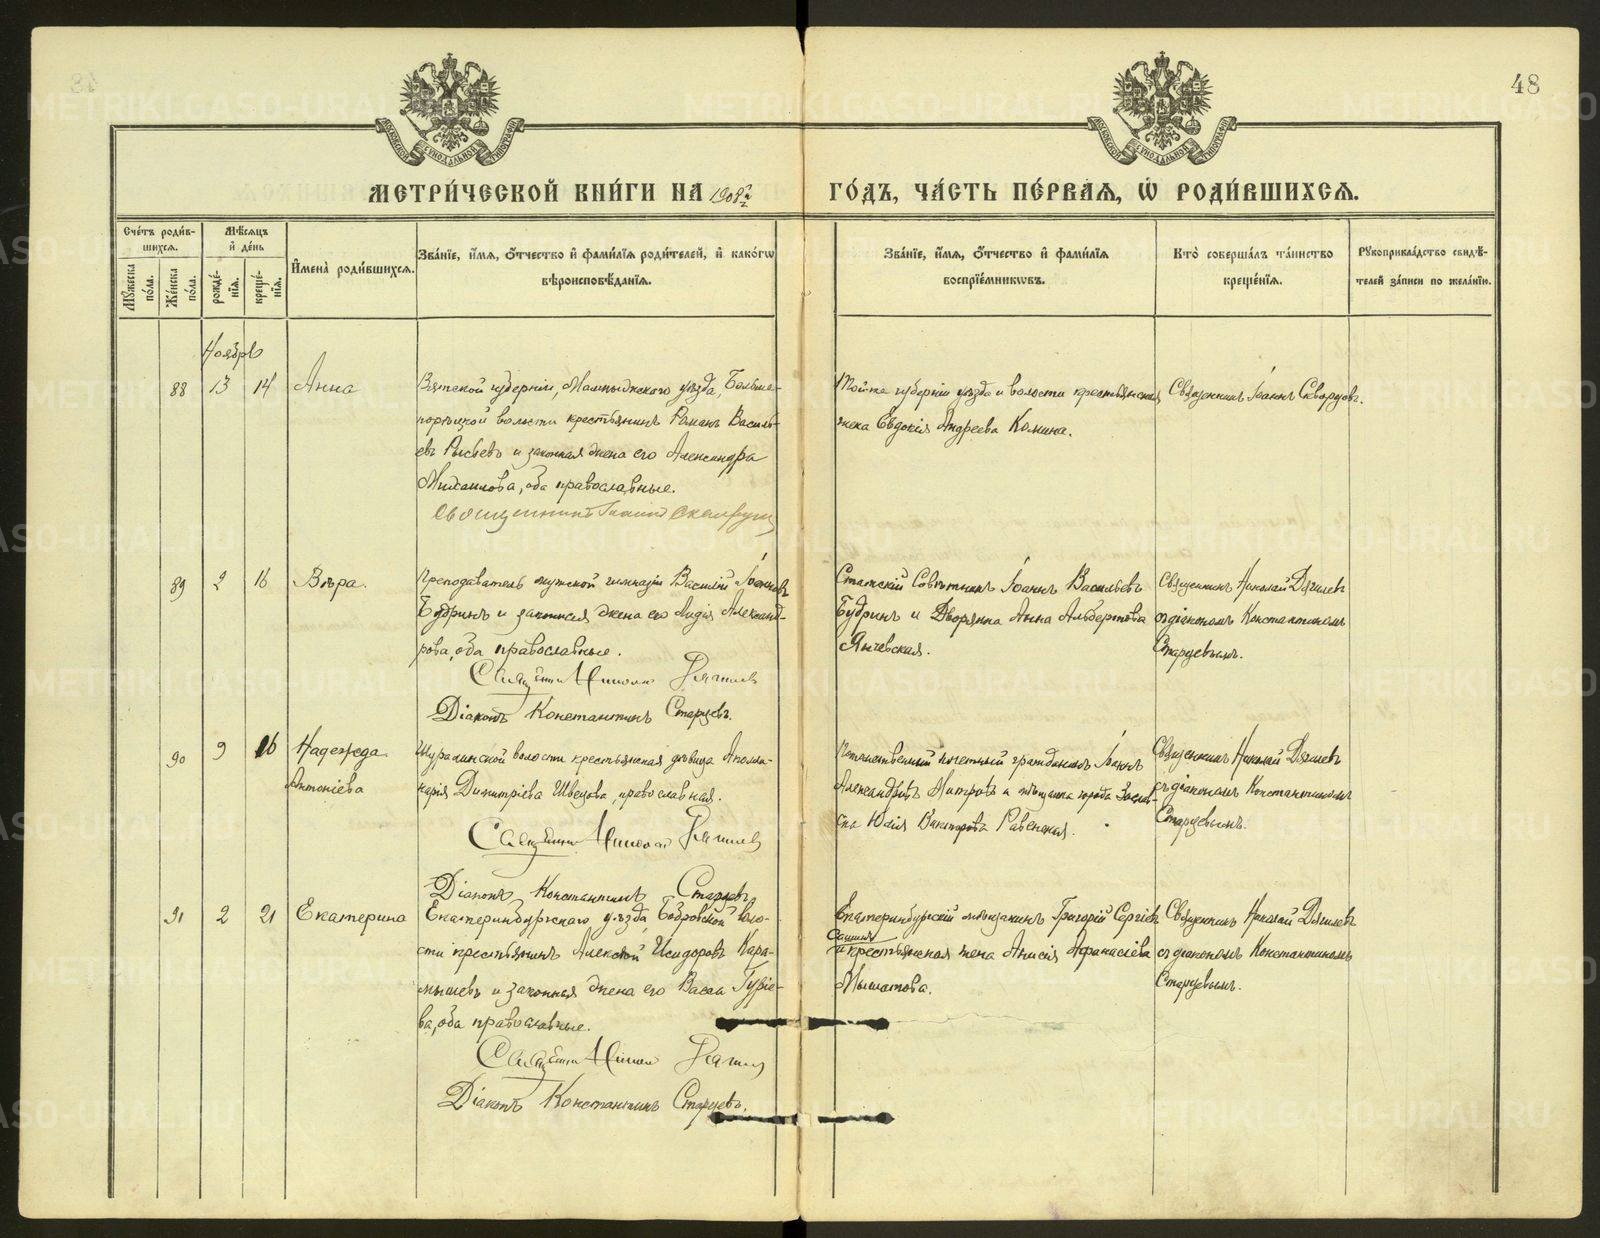 48
МОСКОВСКОЙ СѴНОДАЛЬНОЙ ТИПОГРАФІИ
МОСКОВСКОЙ СѴНОДАЛЬНОЙ ТИПОГРАФІИ
МЕТРИ́ЧЕСКОЙ КНИ́ГИ НА 1908й
ГО́ДЪ, ЧА́СТЬ ПЕ́РВАЯ, Ѡ РОДИ́ВШИХСЯ.
Сче́тъ роди́в-
шихся.
Мꙋ́жеска по́ла.
Же́нска по́ла.
Мѣ́сяцъ
и де́нь
рожде́-
нїя.
креще́-
нїя.
Имена̀ роди́вшихся.
Зва́нїе, и́мя, о́тчество и фами́лїя роди́телей, и како́гѡ
вѣроисповѣ́данїя.
Зва́нїе, и́мя, о́тчество и фами́лїя
воспрїе́мникѡвъ.
Кто̀ соверша́лъ та́инство
креще́нїя.
Рꙋкоприкла́дство свидѣ́-
телей за́писи по жела́нїю.
Ноябрь
88 13 14 Анна
Вятской губерніи, Малмыжского уѣзда, Больше-
порѣцкой волости крестьянинъ Романъ Василь-
евъ Рысьевъ и законная жена его Александра
Михаилова, оба православные.
Священникъ Іоаннъ Скворцовъ
Той же губерніи уѣзда и волости крестьянская
жена Евдокія Андреева Комина.
Священникъ Іоаннъ Скворцовъ.
89 2 16 Вѣра.
Преподаватель мужской гимназіи Василій Іоанновъ
Будринъ и законная жена его Лидія Александ-
рова, оба православные.
Священникъ Николай Дягилев
Діаконъ Константинъ Старцевъ.
Статскій Совѣтникъ Іоаннъ Васильевъ
Будринъ и Дворянка Анна Альбертова
Янчевская.
Священникъ Николай Дягилевъ
съ діакономъ Константиномъ
Старцевымъ.
90 9 16 Надежда
Антоніева
Шуралинской волости крестьянская дѣвица Аполли-
нарія Димитріева Швецова, православная.
Священникъ Николай Дягилев
Діаконъ Константинъ Старцевъ
Потомственный почетный гражданинъ Іоаннъ
Александровъ и мѣщанка города
Юлія Викторова
Священникъ Николай Дягилевъ
съ діакономъ Константиномъ
Старцевымъ.
91 2 21 Екатерина
Екатеринбургскаго уѣзда, Бобровской воло-
сти крестьянинъ Алексѣй Исидоровъ Кара-
мышевъ и законная жена его Васса Гуріе-
ва, оба православные.
Священникъ Николай Дягилев
Діаконъ Константинъ Старцевъ.
Екатеринбургскій мѣщанинъ Григорій Сергіевъ
и крестьянская жена Анисія Афанасіева
Священникъ Николай Дягилевъ
съ діакономъ Константиномъ
Старцевымъ.
METRIKI.GASO-URAL.RU